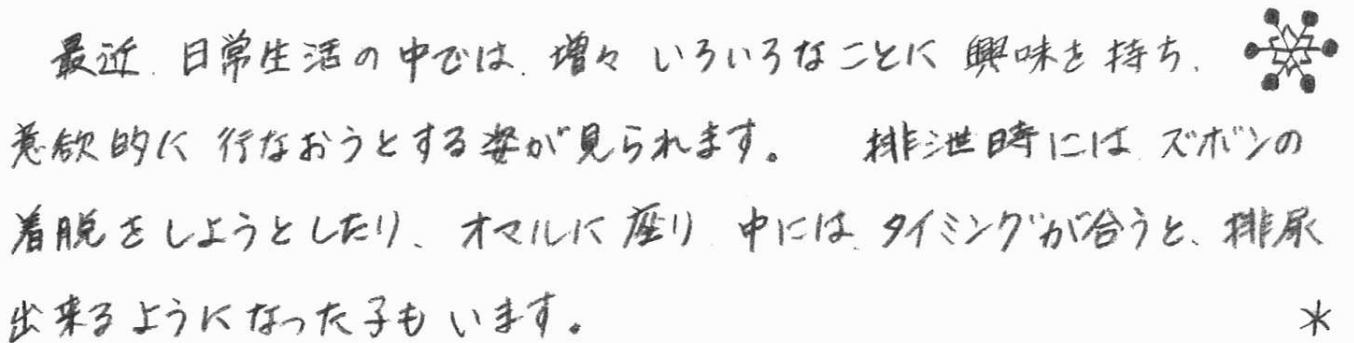 最近、日常生活の中では、増々いろいろなことに興味を持ち、
意欲的に行なおうとする姿が見られます。 排泄時には、ズボンの
着脱をしようとしたり、オマルに座り、中には、タイミングが合うと、排尿
出来るようになった子もいます。 *